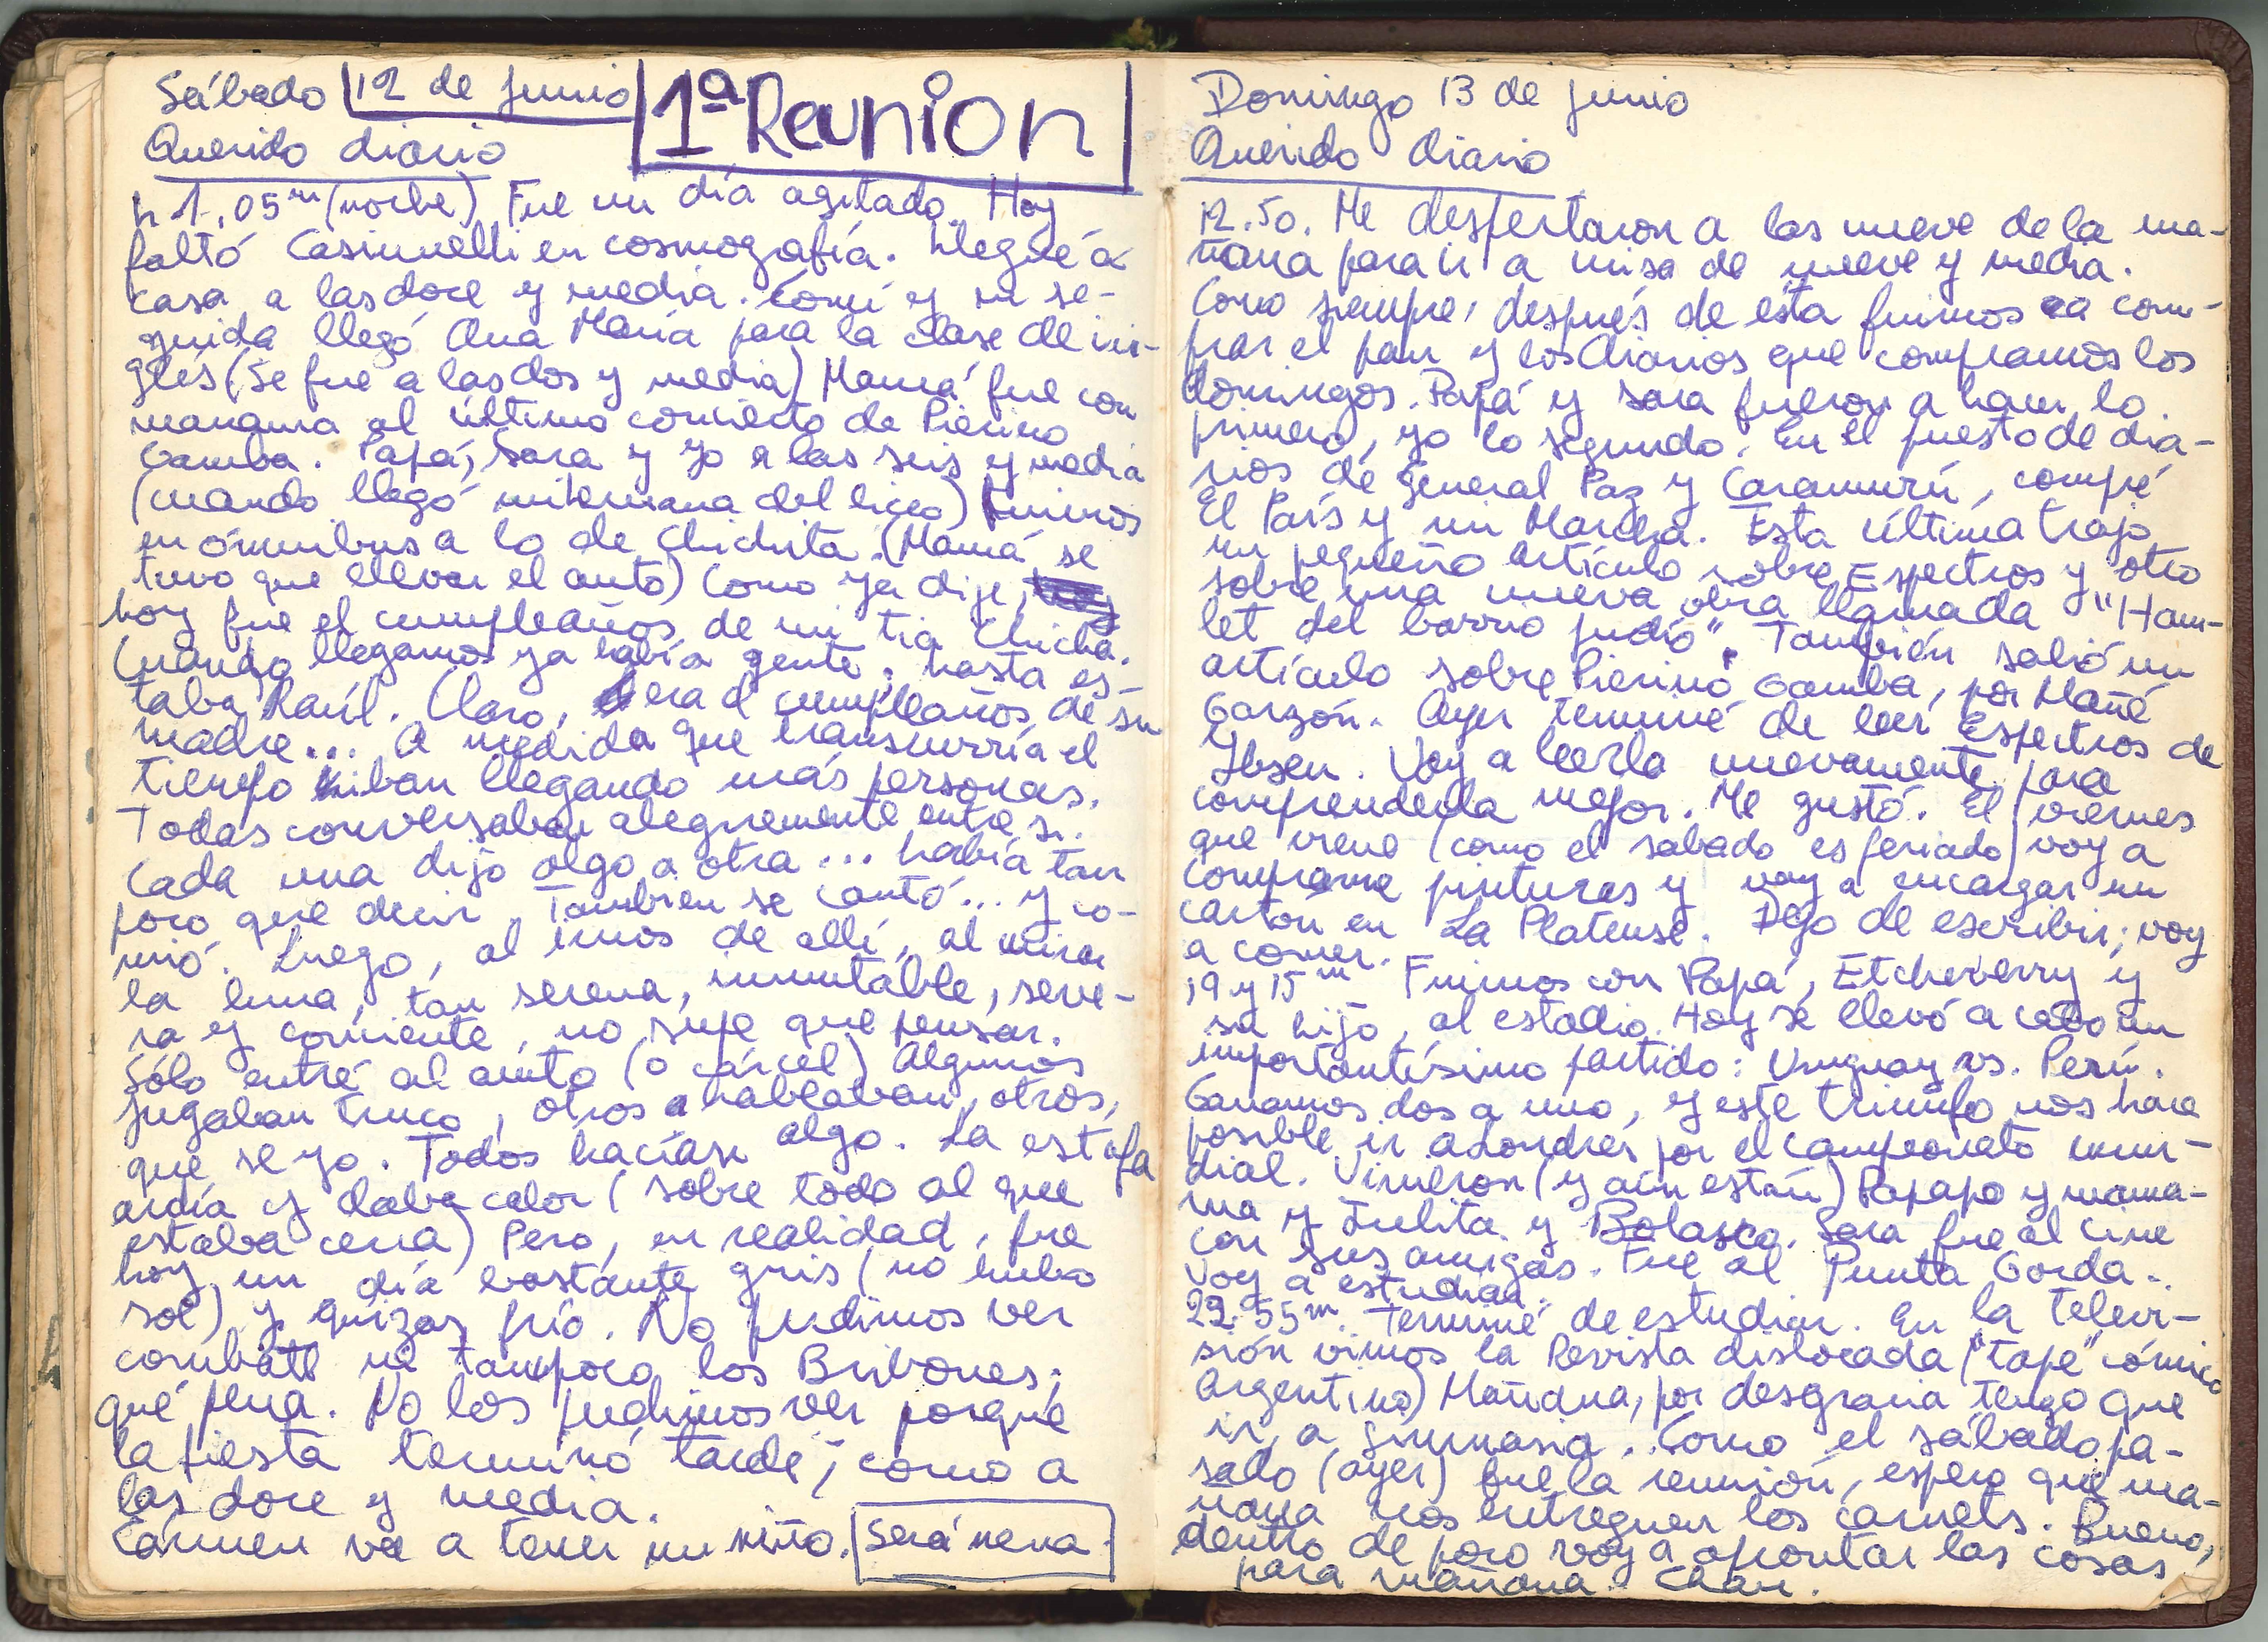 Sábado 12 de junio
1ª Reunion
Querido diario
h 1,05 m (noche) Fue un día agitado. Hoy
faltó Casinnelli en cosmografía. Llegué a
casa a las doce y media. Comí y en se-
guida llegó Ana María para la clase de in-
glés (Se fue a las dos y media) Mamá fue con
mamama al último concierto de Pierino
Gamba. Papá, Sara y yo a las seis y media
(cuando llegó mi hermana del liceo) fuimos
en ómnibus a lo de Chichita. (Mamá se
tuvo que llevar el auto) Como ya dije,
hoy fue el cumpleaños de mi tía Chicha.
Cuando llegamos ya había gente, hasta es-
taba Raúl. Claro, era el cumpleaños de su
madre... A medida que transcurría el
tiempo iban llegando más personas.
Todas conversaban alegremente entre sí.
Cada una dijo algo a otra... había tan
poco que decir. Tambien se cantó... y co-
mió. Luego, al irnos de allí, al mirar
la luna, tan serena, inmutable, seve-
ra y corriente, no supe que pensar.
Sólo entré al auto (o cárcel) Algunos
jugaban truco, otros hablaban, otros,
que se yo. Todos hacían algo. La estufa
ardía y daba calor (sobre todo al que
estaba cerca) Pero, en realidad, fue
hoy un día bastante gris (no hubo
sol) y quizas frío. No pudimos ver
combate ni tampoco los Bribones;
qué pena. No los pudimos ver porque
la fiesta terminó tarde; como a
las doce y media.
Cármen va a tener un niño. Será nena.
Domingo 13 de junio
Querido diario
12.50. Me despertaron a las nueve de la ma-
ñana para ir a misa de nueve y media.
Como siempre, después de esta fuimos a com-
prar el pan y los diarios que compramos los
domingos. Papá y Sara fueron a hacer lo
primero, yo lo segundo. En el puesto de dia-
rios de General Paz y Caramurú, compré
El País y mi Marcha. Esta última trajo
un pequeño artículo sobre Espectros y otro
sobre una nueva obra llamada "Ham-
let del barrio judío". También salió un
artículo sobre Pierino Gamba, por Mañé
Garzón. Ayer terminé de leer Espectros de
Ibsen. Voy a leerla nuevamente para
comprenderla mejor. Me gustó. El viernes
que viene (como el sabado es feriado) voy a
comprarme pinturas y voy a encargar un
cartón en La Platense. Dejo de escribir; voy
a comer.
19 y 15 m Fuimos con Papá, Etcheverry y
su hijo, al estadio. Hoy se llevó a cabo un
importantísimo partido: Uruguay vs. Perú.
Ganamos dos a uno, y este triunfo nos hace
posible ir a Londres por el campeonato mun-
dial. Vinieron (y aún están) Papapo y mama-
ma y Julita y Bolasco. Sara fue al cine
con sus amigas. Fue al Punta Gorda.
Voy a estudiar.
22.55 m. Terminé de estudiar. En la televi-
sión vimos la Revista dislocada ("tape" cómico
Argentino) Mañana, por desgracia tengo que
ir a gimnasia. Como el sábado pa-
sado (ayer) fue la reunión, espero que ma-
ñana nos entreguen los carnets. Bueno,
dentro de poco voy a aprontar las cosas
para mañana. Chau.